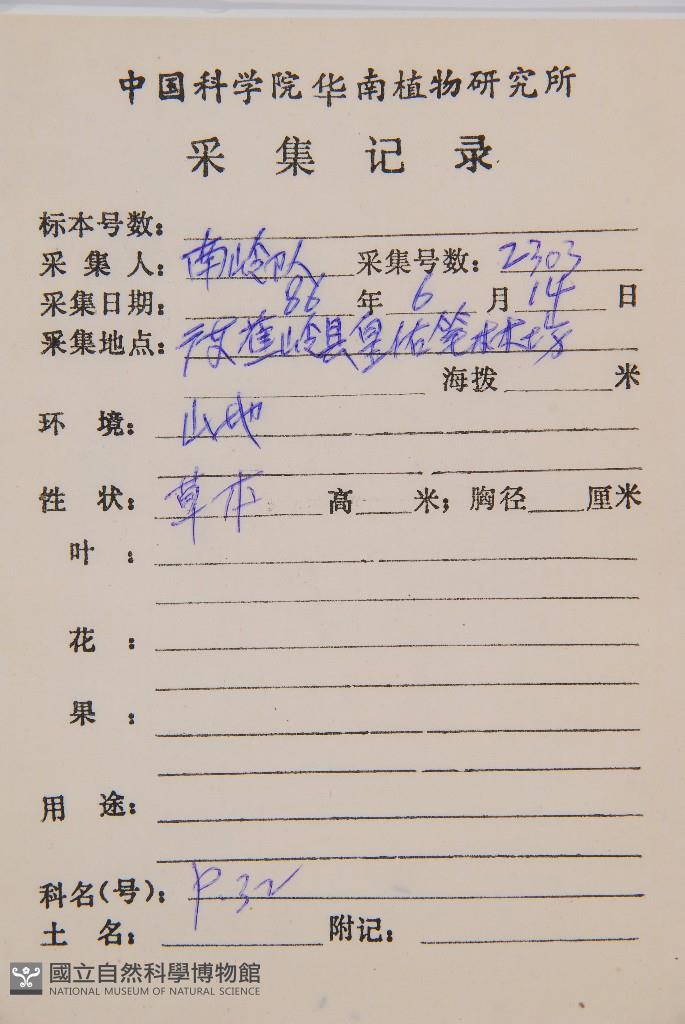 中国科学院华南植物研究所
采集记录
标本号数：
采集人：南岭队 采集号数：2303
采集日期：86年6月14日
采集地点：蕉岭县皇佑笔林场
海拨 米
环境：山地
性状：草本 高 米；胸径 厘米
叶：
花：
果：
用途：
科名(号)：P.32
土名： 附记：
國立自然科學博物館
NATIONAL MUSEUM OF NATURAL SCIENCE